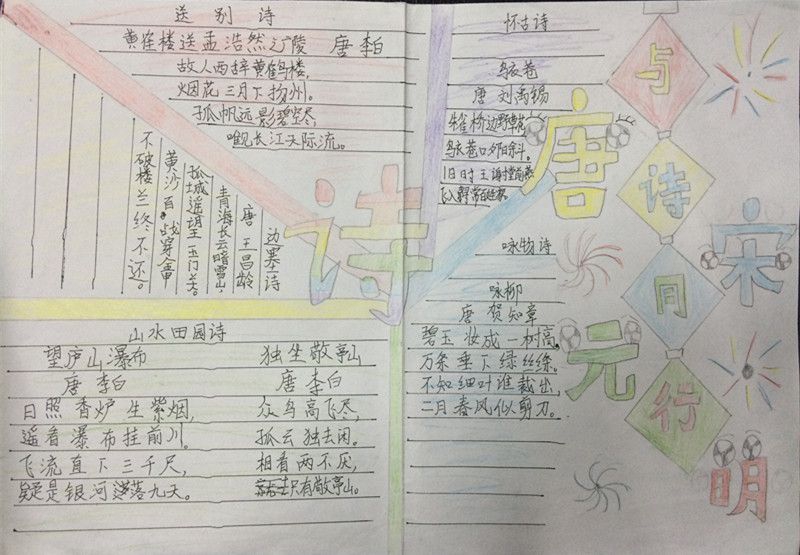 送别诗
黄雀楼送孟浩然之广陵 唐 李白
故人西辞黄雀楼,
烟花三月下扬州。
孤帆远影碧空尽
唯见长江天际流。
边塞诗
唐 王昌龄
青海长云暗雪山,
孤城遥望玉门关。
黄沙百战穿金甲
不破楼兰终不还。
诗
山水田园诗
望庐山瀑布
唐 李白
日照香炉生紫烟,
遥看瀑布挂前川。
飞流直下三千尺,
疑是银河落九天。
独坐敬亭山
唐 李白
众鸟高飞尽,
孤云独去闲。
相看两不厌,
只有敬亭山。
怀古诗
乌衣巷
唐 刘禹锡
朱雀桥边野草花
乌衣巷口夕阳斜。
旧时王谢堂前燕
飞入寻常百姓家。
咏物诗
咏柳
唐 贺知章
碧玉妆成一树高。
万条垂下绿丝绦。
不知细叶谁裁出,
二月春风似剪刀。
与诗同行
唐
宋
元
明